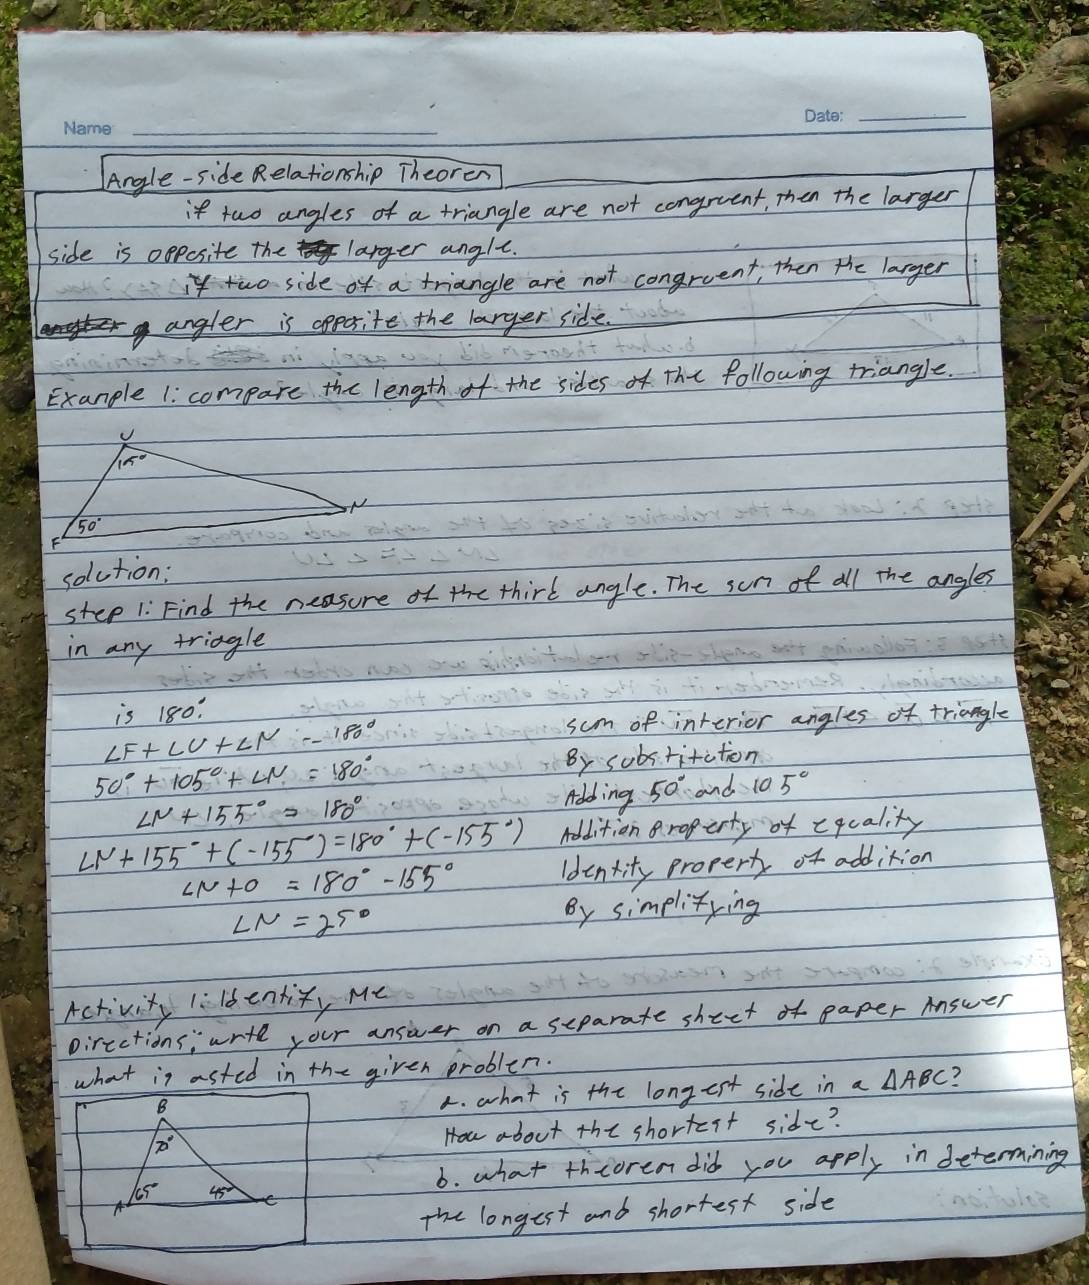 Name
Date:
Angle-side Relationship Theorem
if two angles of a triangle are not congruent, then the larger
side is opposite the larger angle.
if two side of a triangle are not congruent, then the larger
angler is opposite the larger side.
Example 1: compare the length of the sides of the following triangle.
U
105°
N
50°
F
solution:
step 1: Find the measure of the third angle. The sum of all the angles
in any triagle
is 180°.
∠F + ∠U + ∠N = 180° sum of interior angles of triangle
50° + 105° + ∠N = 180° By substitution
∠N + 155° = 180° Adding 50° and 105°
∠N + 155° + (-155°) = 180° + (-155°) Addition Property of equality
∠N + 0 = 180° - 155° Identity property of addition
∠N = 25° By simplifying
Activity 1: Identify Me
Directions: write your answer on a separate sheet of paper Answer
what is asted in the given problem.
B
70°
A 65° 45° C
a. what is the longest side in a ΔABC?
How about the shortest side?
b. what theorem did you apply in determining
the longest and shortest side